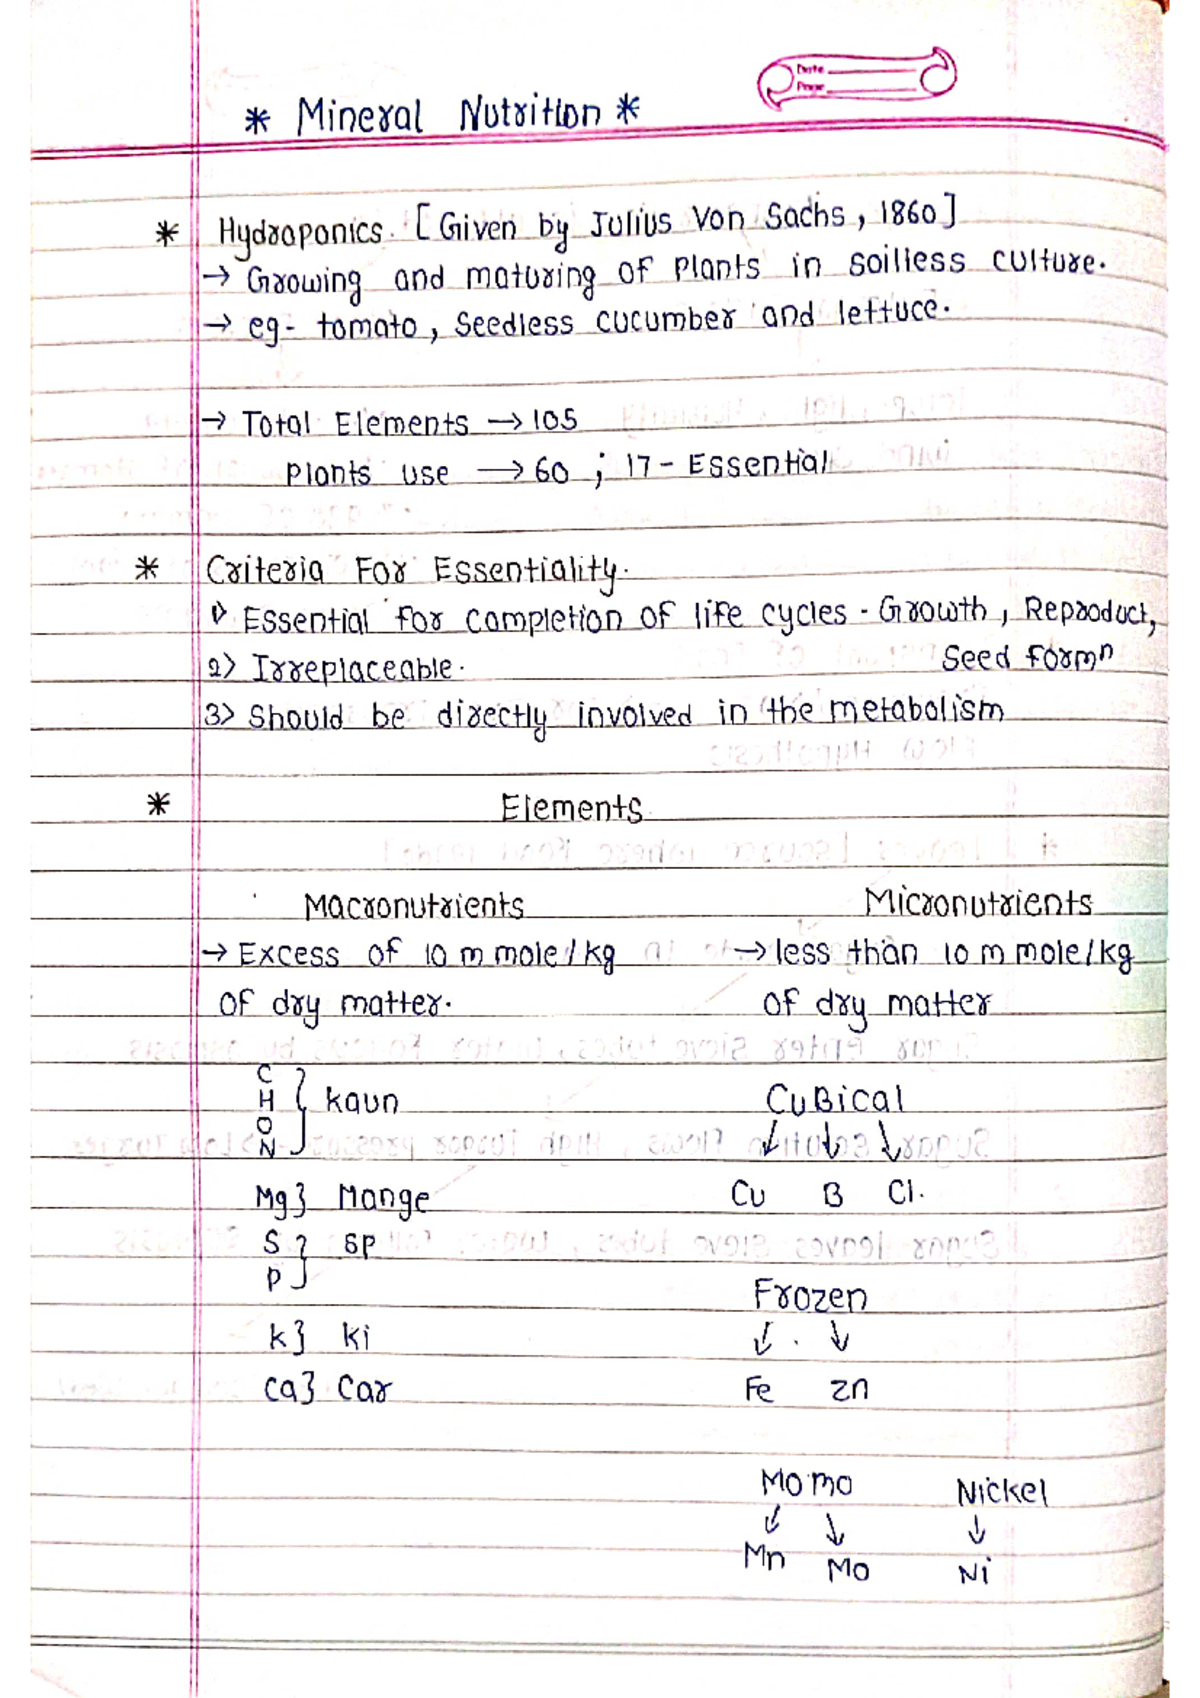 Date
Page
* Mineral Nutrition *
* Hydroponics. [Given by Julius Von Sachs, 1860]
→ Growing and maturing of Plants in soilless culture.
→ eg- tomato, Seedless cucumber and lettuce.
→ Total Elements → 105
Plants use → 60 ; 17 - Essential
* Criteria For Essentiality.
1) Essential for completion of life cycles - Growth, Reproduct,
Seed formⁿ
2) Irreplaceable.
3) Should be directly involved in the metabolism
* Elements
Macronutrients Micronutrients
→ Excess of 10 m mole/kg → less than 10 m mole/kg
of dry matter. of dry matter
C
H } kaun CuBical
O
N
Mg} Mange Cu B Cl.
S } SP
P
Frozen
K} ki
Ca} Car Fe Zn
Mo mo Nickel
Mn Mo Ni